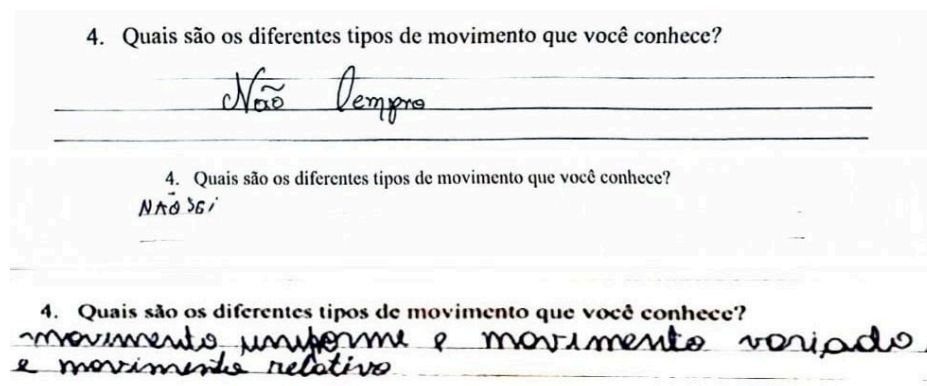 4. Quais são os diferentes tipos de movimento que você conhece?
Não lempro
4. Quais são os diferentes tipos de movimento que você conhece?
NÃO SEI
4. Quais são os diferentes tipos de movimento que você conhece?
movimento uniforme e movimento variado
e movimento relativo